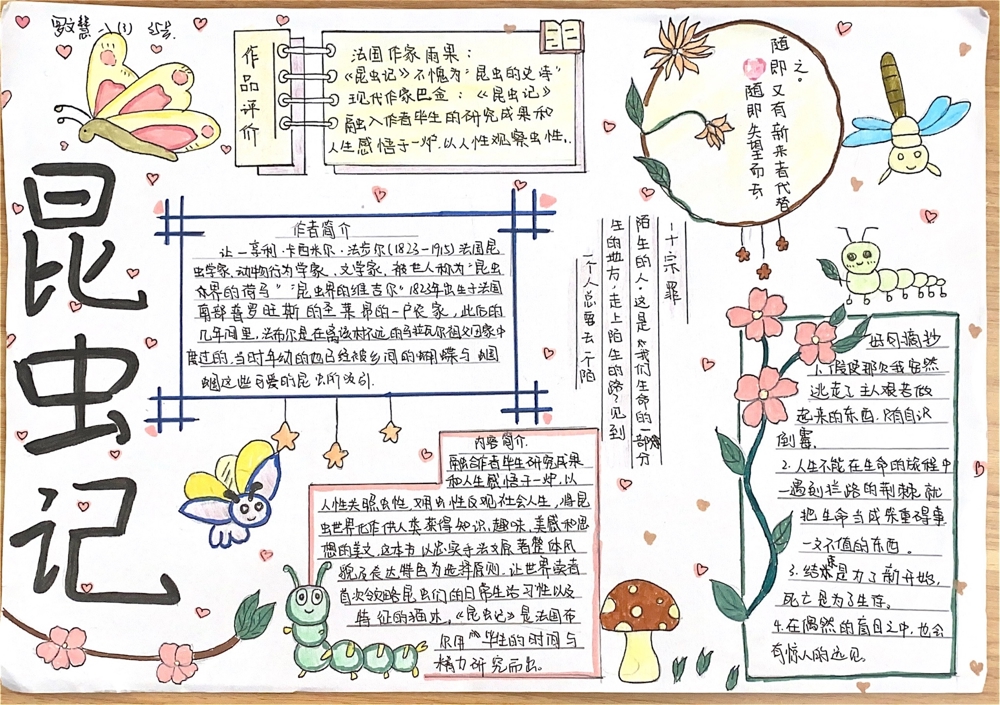 昆虫记
作品评价
法国作家雨果：
《昆虫记》不愧为"昆虫的史诗"
现代作家巴金：《昆虫记》
融入作者毕生的研究成果和
人生感悟于一炉.以人性观察虫性.
随之.
即又有新来者代替
随即失望而去
作者简介
让一亨利·卡西米尔·法布尔(1823-1915)法国昆
虫学家.动物行为学家.文学家.被世人称为"昆虫
界的荷马""昆虫界的维吉尔"1823年出生于法国
南部普罗旺斯的圣莱昂的一户农家，此后的
几年间里，法布尔是在离该村不远的
度过的.当时年幼的他已经被乡间的蝴蝶与蝈
蝈这些可爱的昆虫所吸引.
一个人总要去个陌
生的地方，走上陌生的路，见到
陌生的人：这是《我们生命的一部分
一十宗罪
内容简介.
融合作者毕生研究成果
和人生感悟于一炉，以
人性关照虫性，反观社会人生，将昆
虫世界化作供人类获得知识，趣味，美感和思
想的美文，这本书以忠实于法文原著整体风
貌及表达特色为选择原则，让世界读者
首次领略昆虫们的日常生活习性以及
特征的描述，《昆虫记》是法国布
尔用 毕生的时间与
精力研究而出。
好句摘抄
1.假使那次我安然
逃走了主人艰苦做
起来的东西.只有自认
倒霉.
2.人生不能在生命的旅程中
一遇到拦路的荆棘就
把生命当成失重得事
一文不值的东西。
3.结束是为了新开始，
死亡是为了生存。
4.在偶然的盲目之中.也会
有惊人的远见。